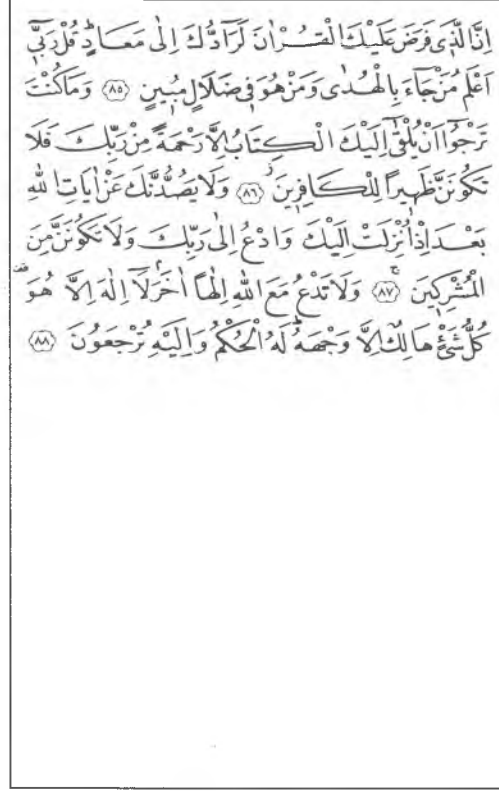 اِنَّ الَّذٖى فَرَضَ عَلَيْكَ الْقُرْاٰنَ لَرَٓادُّكَ اِلٰى مَعَادٍؕ قُلْ رَبّٖٓى
اَعْلَمُ مَنْ جَٓاءَ بِالْهُدٰى وَمَنْ هُوَ فٖى ضَلَالٍ مُبٖينٍ ﴿٨٥﴾ وَمَا كُنْتَ
تَرْجُٓوا اَنْ يُلْقٰٓى اِلَيْكَ الْكِتَابُ اِلَّا رَحْمَةً مِنْ رَبِّكَ فَلَا
تَكُونَنَّ ظَهٖيراً لِلْكَافِرٖينَؗ ﴿٨٦﴾ وَلَا يَصُدُّنَّكَ عَنْ اٰيَاتِ اللّٰهِ
بَعْدَ اِذْ اُنْزِلَتْ اِلَيْكَ وَادْعُ اِلٰى رَبِّكَ وَلَا تَكُونَنَّ مِنَ
الْمُشْرِكٖينَۚ ﴿٨٧﴾ وَلَا تَدْعُ مَعَ اللّٰهِ اِلٰهاً اٰخَرَۘ لَٓا اِلٰهَ اِلَّا هُوَࣞ
كُلُّ شَىْءٍ هَالِكٌ اِلَّا وَجْهَهُؕ لَهُ الْحُكْمُ وَاِلَيْهِ تُرْجَعُونَ ﴿٨٨﴾